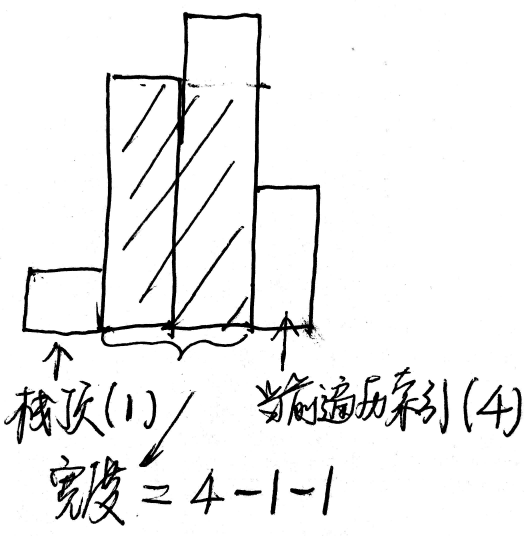 栈顶(1)
当前遍历索引(4)
宽度 = 4-1-1